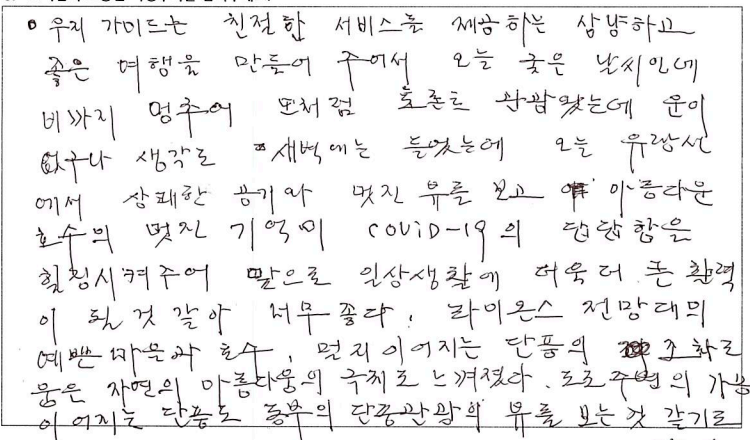 우리 가이드는 친절한 서비스를 제공하는 상냥하고
좋은 여행을 만들어 주어서 오늘 궂은 날씨인데
비까지 멈추어 모처럼 토론토 관광왔는데 운이
없구나 생각도 새벽에는 들었는데 오늘 유람선
에서 상쾌한 공기와 멋진 뷰를 보고 아름다운
호수의 멋진 기억이 COVID-19의 답답함을
힐링시켜주어 앞으로 일상생활에 더욱더 큰 활력
이 될 것 같아 너무 좋다. 라이온스 전망대의
예쁜 마을과 호수, 멀리 이어지는 단풍의 조화로
움은 자연의 아름다움의 극치로 느껴졌다. 도로주변의
이어지는 단풍도 동부의 단풍관광의 뷰를 보는것 같기도